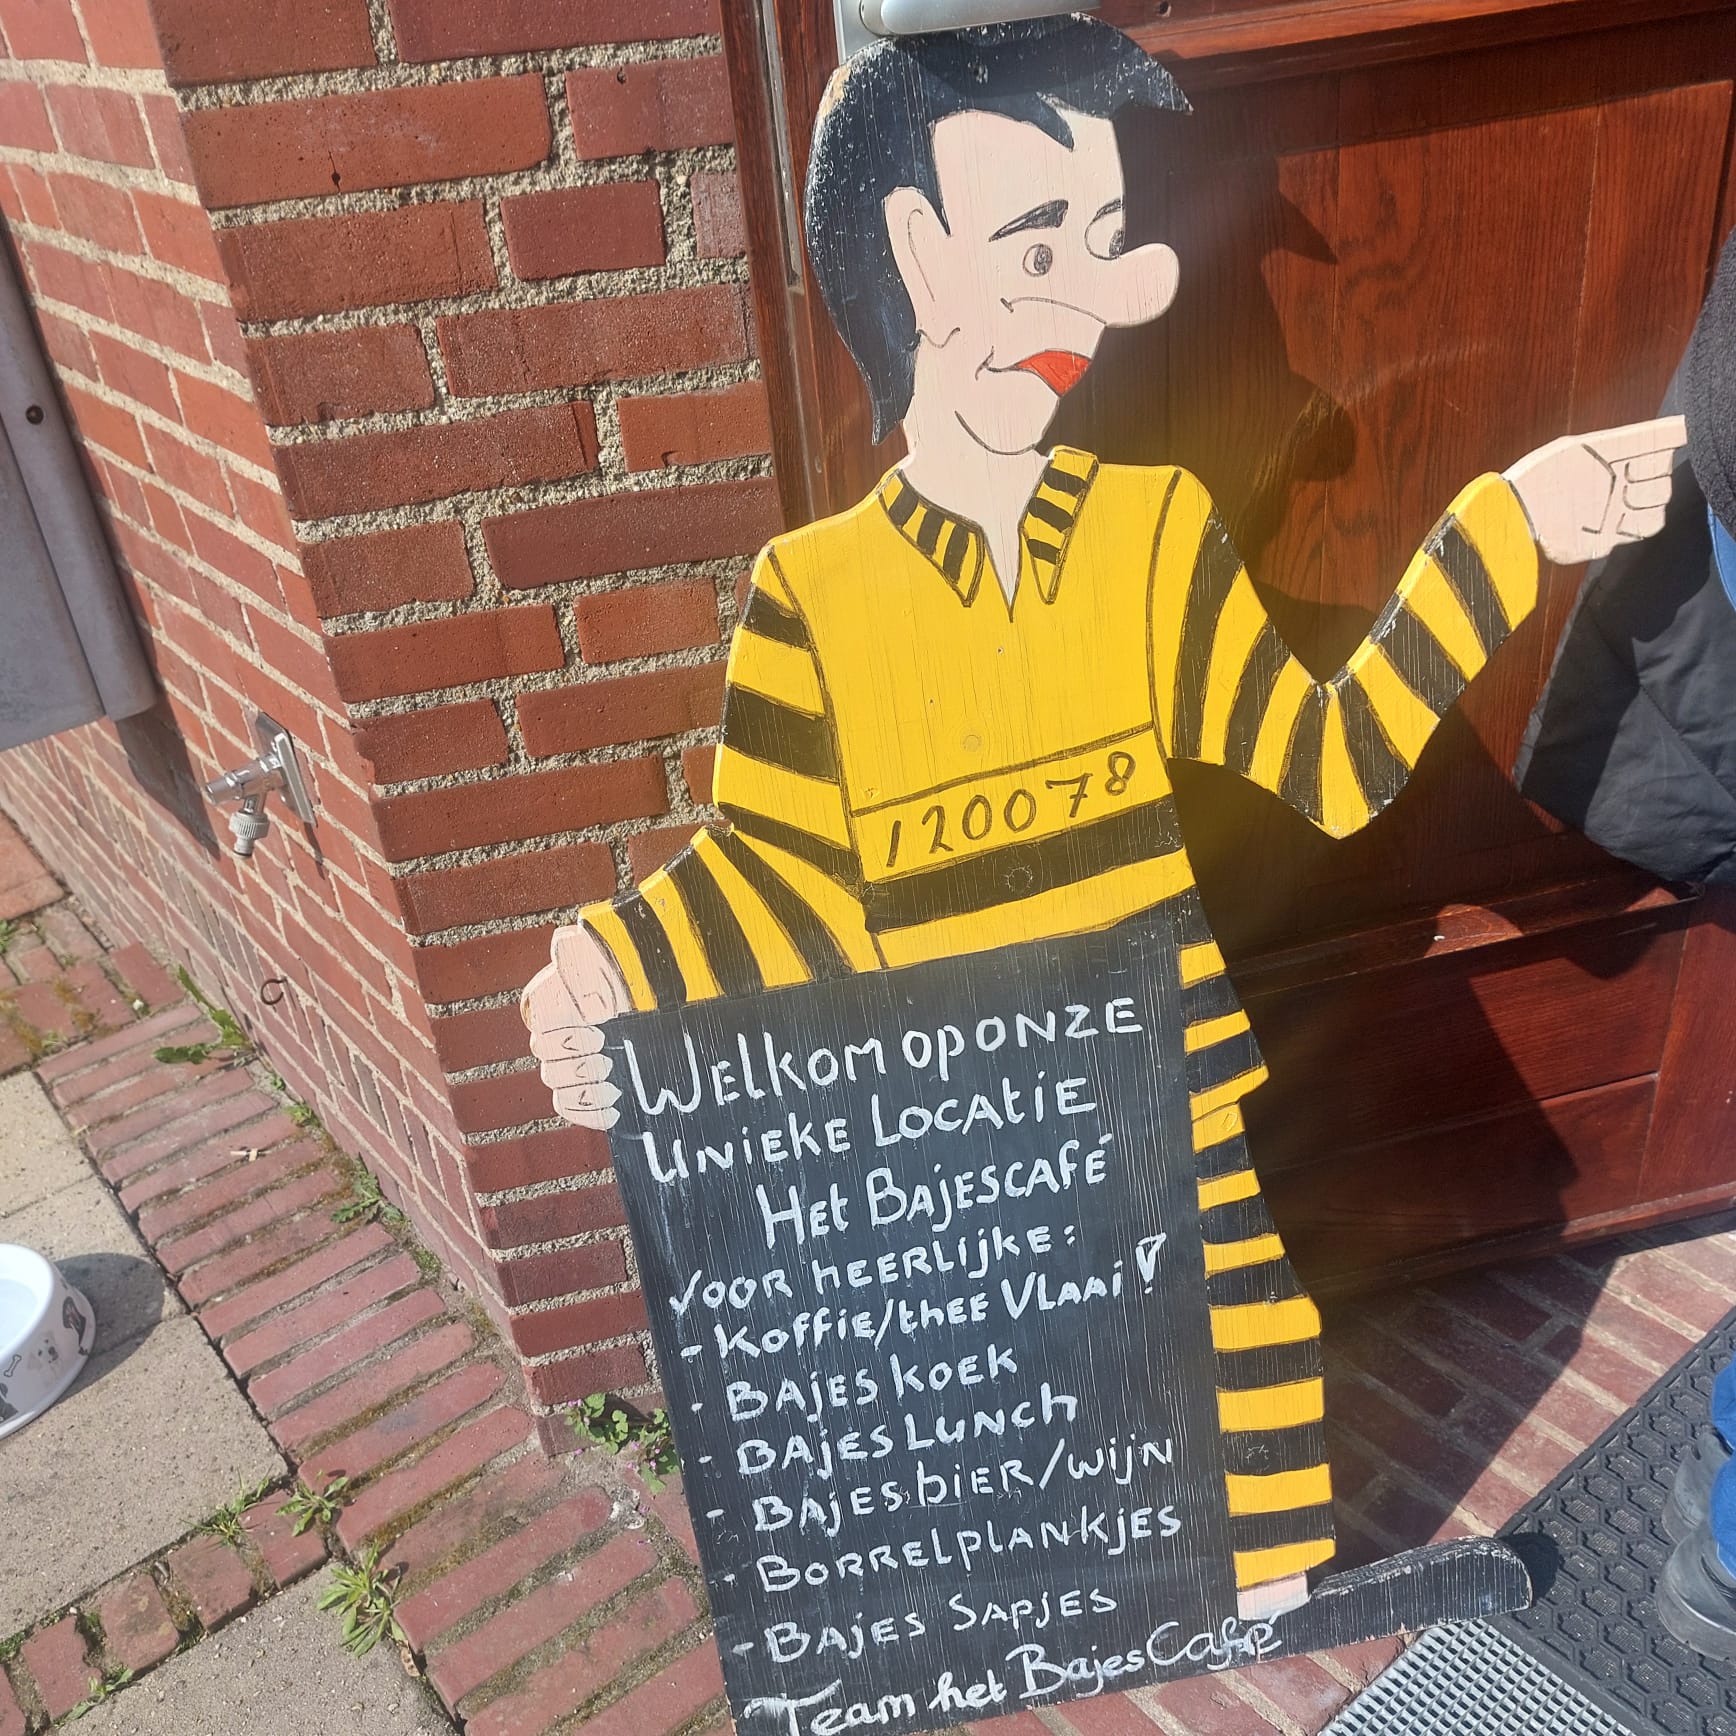 120078
WELKOM OP ONZE
UNIEKE LOCATIE
HET BAJESCAFÉ
VOOR HEERLIJKE:
- KOFFIE/THEE VLAAI!
- BAJES KOEK
- BAJES LUNCH
- BAJES BIER/WIJN
- BORRELPLANKJES
- BAJES SAPJES
Team het BajesCafé